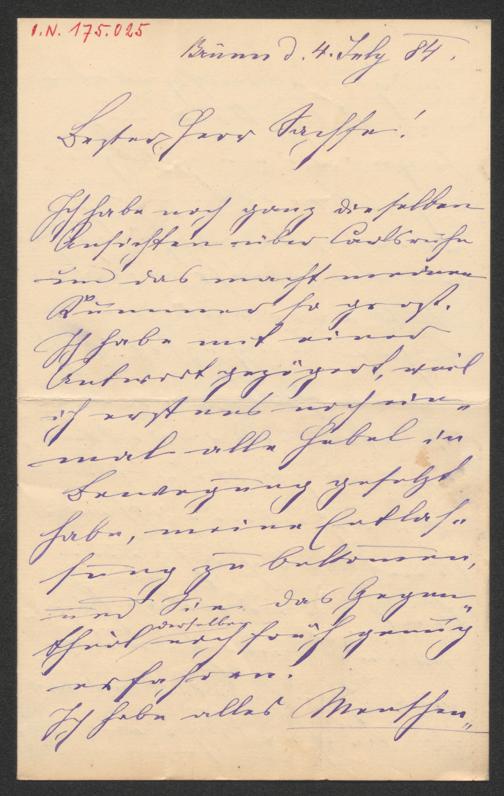 I.N. 175.025
Brünn d. 4. July 84.
Bester Herr Sachse!
Ich habe noch ganz dieselben
Ansichten über Carlsruhe
und das macht meinen
Kummer so gross.
Ich habe mit einer
Antwort gezögert, weil
ich erstens noch ein„
mal alle Hebel in
Bewegung gesetzt
habe, meine Entlas„
sung zu bekommen,
und Sie das Gegen„
theil derselben noch früh genug
erfahren.
Ich habe alles Menschen„